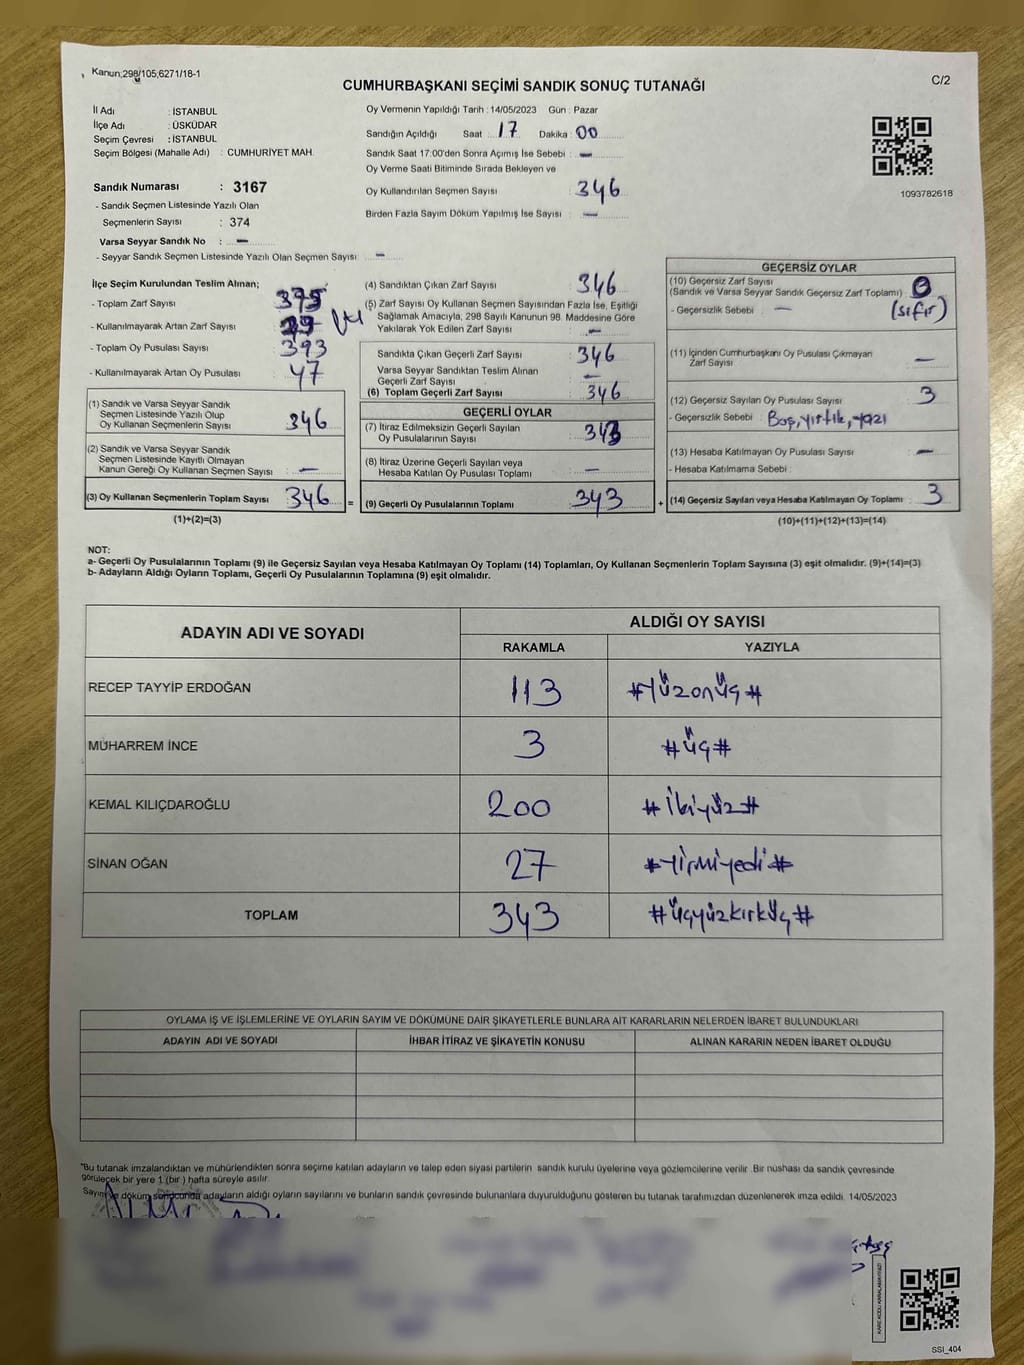 Kanun;298/105;6271/18-1
C/2
CUMHURBAŞKANI SEÇİMİ SANDIK SONUÇ TUTANAĞI
İl Adı : İSTANBUL
İlçe Adı : ÜSKÜDAR
Seçim Çevresi : İSTANBUL
Seçim Bölgesi (Mahalle Adı) : CUMHURİYET MAH.
Sandık Numarası : 3167
- Sandık Seçmen Listesinde Yazılı Olan
Seçmenlerin Sayısı : 374
Varsa Seyyar Sandık No : –
- Seyyar Sandık Seçmen Listesinde Yazılı Olan Seçmen Sayısı: –
Oy Vermenin Yapıldığı Tarih : 14/05/2023 Gün : Pazar
Sandığın Açıldığı Saat : 17 Dakika : 00
Sandık Saat 17:00'den Sonra Açımış İse Sebebi : –
Oy Verme Saati Bitiminde Sırada Bekleyen ve
Oy Kullandırılan Seçmen Sayısı : 346
Birden Fazla Sayım Döküm Yapılmış İse Sayısı : –
1093782618
İlçe Seçim Kurulundan Teslim Alınan;
- Toplam Zarf Sayısı : 375
- Kullanılmayarak Artan Zarf Sayısı :
- Toplam Oy Pusulası Sayısı : 393
- Kullanılmayarak Artan Oy Pusulası : 47
(1) Sandık ve Varsa Seyyar Sandık
Seçmen Listesinde Yazılı Olup
Oy Kullanan Seçmenlerin Sayısı : 346
(2) Sandık ve Varsa Seyyar Sandık
Seçmen Listesinde Kayıtlı Olmayan
Kanun Gereği Oy Kullanan Seçmen Sayısı : –
(3) Oy Kullanan Seçmenlerin Toplam Sayısı : 346 =
(1)+(2)=(3)
(4) Sandıktan Çıkan Zarf Sayısı : 346
(5) Zarf Sayısı Oy Kullanan Seçmen Sayısından Fazla İse, Eşitliği
Sağlamak Amacıyla, 298 Sayılı Kanunun 98. Maddesine Göre
Yakılarak Yok Edilen Zarf Sayısı : –
Sandıkta Çıkan Geçerli Zarf Sayısı : 346
Varsa Seyyar Sandıktan Teslim Alınan
Geçerli Zarf Sayısı : –
(6) Toplam Geçerli Zarf Sayısı : 346
GEÇERLİ OYLAR
(7) İtiraz Edilmeksizin Geçerli Sayılan
Oy Pusulalarının Sayısı : 343
(8) İtiraz Üzerine Geçerli Sayılan veya
Hesaba Katılan Oy Pusulası Toplamı : –
(9) Geçerli Oy Pusulalarının Toplamı : 343 +
GEÇERSİZ OYLAR
(10) Geçersiz Zarf Sayısı
(Sandık ve Varsa Seyyar Sandık Geçersiz Zarf Toplamı) : 0
- Geçersizlik Sebebi : – (sıfır)
(11) İçinden Cumhurbaşkanı Oy Pusulası Çıkmayan
Zarf Sayısı : –
(12) Geçersiz Sayılan Oy Pusulası Sayısı : 3
- Geçersizlik Sebebi : Boş, yırtık, yazı
(13) Hesaba Katılmayan Oy Sayısı : –
- Hesaba Katılmama Sebebi :
(14) Geçersiz Sayılan veya Hesaba Katılmayan Oy Toplamı : 3
(10)+(11)+(12)+(13)=(14)
NOT:
a- Geçerli Oy Pusulalarının Toplamı (9) ile Geçersiz Sayılan veya Hesaba Katılmayan Oy Toplamı (14) Toplamları, Oy Kullanan Seçmenlerin Toplam Sayısına (3) eşit olmalıdır. (9)+(14)=(3)
b- Adayların Aldığı Oyların Toplamı, Geçerli Oy Pusulalarının Toplamına (9) eşit olmalıdır.
ADAYIN ADI VE SOYADI ALDIĞI OY SAYISI
RAKAMLA YAZIYLA
RECEP TAYYİP ERDOĞAN 113 #Yüzonüç#
MUHARREM İNCE 3 #üç#
KEMAL KILIÇDAROĞLU 200 #ikiyüz#
SİNAN OĞAN 27 #yirmiyedi#
TOPLAM 343 #üçyüzkırküç#
OYLAMA İŞ VE İŞLEMLERİNE VE OYLARIN SAYIM VE DÖKÜMÜNE DAİR ŞİKAYETLERLE BUNLARA AİT KARARLARIN NELERDEN İBARET BULUNDUKLARI
ADAYIN ADI VE SOYADI İHBAR İTİRAZ VE ŞİKAYETİN KONUSU ALINAN KARARIN NEDEN İBARET OLDUĞU
"Bu tutanak imzalandıktan ve mühürlendikten sonra seçime katılan adayların ve talep eden siyasi partilerin sandık kurulu üyelerine veya gözlemcilerine verilir. Bir nüshası da sandık çevresinde
görülecek bir yere 1 (bir ) hafta süreyle asılır.
Sayım ve döküm sonucunda adayların aldığı oyların sayılarını ve bunların sandık çevresinde bulunanlara duyurulduğunu gösteren bu tutanak tarafımızdan düzenlenerek imza edildi. 14/05/2023
KARE KODU KARALAMAYINIZ!
SSI_404